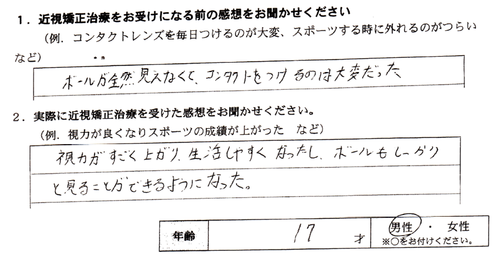 1．近視矯正治療をお受けになる前の感想をお聞かせください
（例．コンタクトレンズを毎日つけるのが大変、スポーツする時に外れるのがつらい
など）
ボールが全然見えなくて、コンタクトをつけるのは大変だった
2．実際に近視矯正治療を受けた感想をお聞かせください。
（例．視力が良くなりスポーツの成績が上がった　など）
視力がすごく上がり、生活しやすくなったし、ボールもしっかり
と見ることができるようになった。
年齢　17　才　男性　・　女性
※○をお付けください。